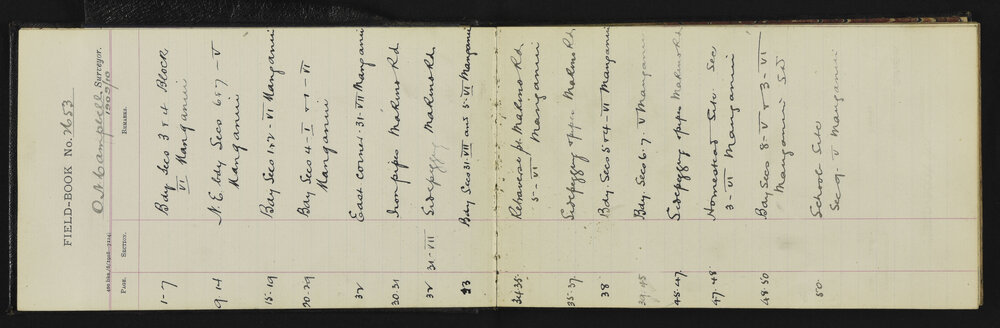 FIELD-BOOK No. 2653
O N Campbell, Surveyor.
1909/10
PAGE. SECTION. REMARKS.
1-7 Bdy Secs 3 & 4 Block
VI Mangamui
9-14 N.E. bdy Secs 6 & 7 - V
Mangamui
15-19 Bdy Secs 1 & 2 - VI Mangamui
20-29 Bdy Secs 4 - I & 1 - VI
Mangamui
32 East corner 31-VII Mangamui
30-31 Iron pipes Makino Rd
32 31-VII Sidepegging Makino Rd
33 Bdy Secs 31-VII and 5-VI Mangamui
34-35 Retraverse pt. Makino Rd.
5-VI Mangamui
35-37 Sidepegging & pipes Makino Rd.
38 Bdy Secs 5 & 4 - VI Mangamui
39-45 Bdy Secs 6-7-V Mangamui
45-47 Sidepegging & pipes Makino Rd
47-48 Homestead Site Sec
3-VI Mangamui
48-50 Bdy Secs 8-V & 3-VI
Mangamui SD
50 School Site
Sec 9-V Mangamui